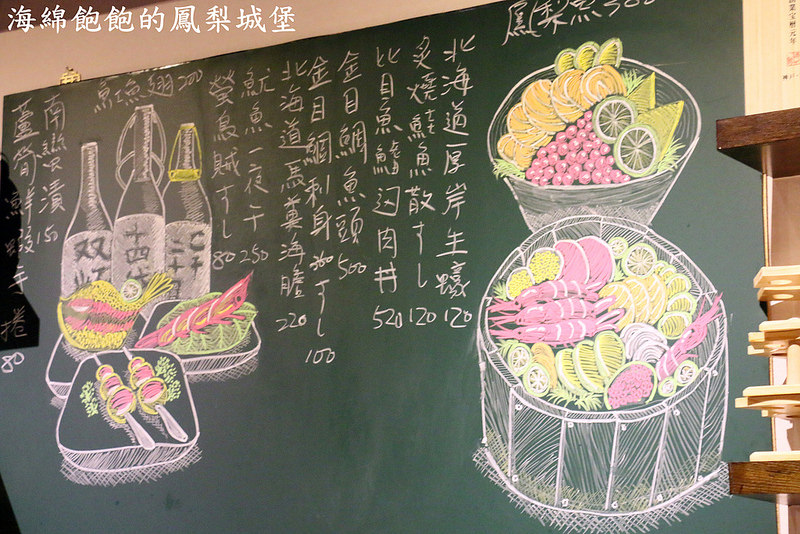 海綿飽飽的鳳梨城堡
鳳梨魚 300
北海道厚岸生蠔 120
炙燒鮭魚散すし 120
比目魚鰭邊肉丼 520
金目鯛魚頭 500
金目鯛刺身 300 すし 100
北海道馬糞海膽 220
魷魚一夜干 250
螢烏賊すし 80
魟魚翅 200
南蠻漬 150
蘆筍鮮蝦手捲 80
十四代